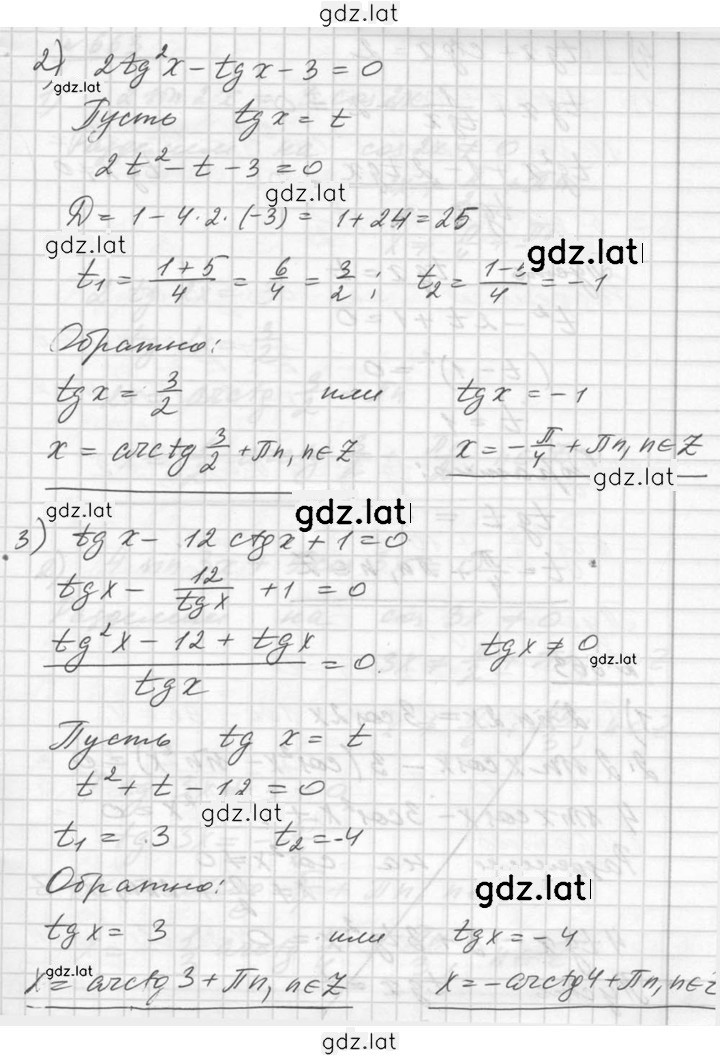 gdz.lat
2) 2tg²x - tgx - 3 = 0
gdz.lat
Пусть tgx = t
2t² - t - 3 = 0
gdz.lat
D = 1 - 4·2·(-3) = 1 + 24 = 25
gdz.lat
gdz.lat
t₁ = (1+5)/4 = 6/4 = 3/2 ; t₂ = (1-5)/4 = -1
Обратно:
tgx = 3/2 или tgx = -1
x = arctg 3/2 + πn, n∈Z x = -π/4 + πn, n∈Z
gdz.lat
gdz.lat gdz.lat
3) tgx - 12ctgx + 1 = 0
tgx - 12/tgx + 1 = 0
(tg²x - 12 + tgx)/tgx = 0. tgx ≠ 0
gdz.lat
Пусть tg x = t
t² + t - 12 = 0
gdz.lat
t₁ = 3 t₂ = -4
Обратно:
gdz.lat
tgx = 3 или tgx = -4
gdz.lat
x = arctg 3 + πn, n∈Z x = -arctg4 + πn, n∈Z
gdz.lat